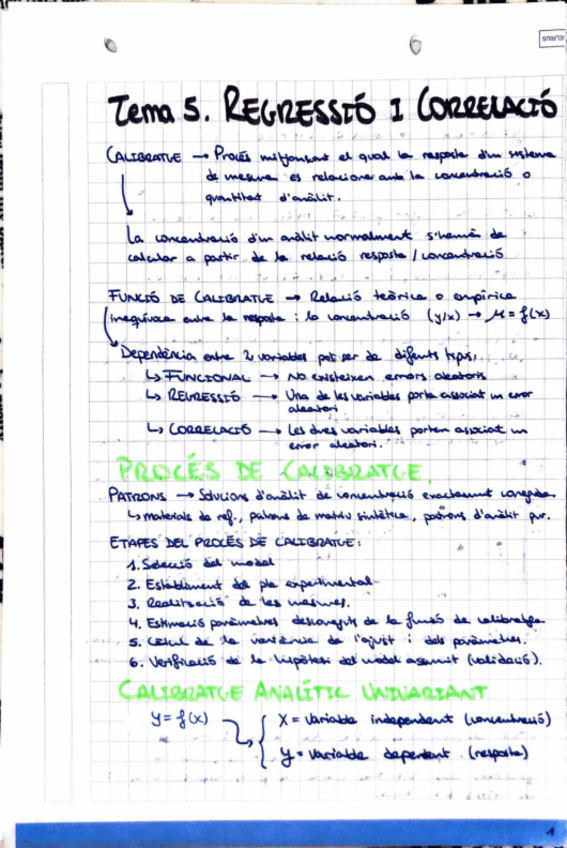 Tema 5. REGRESSIÓ I CORRELACIÓ
CALIBRATGE → Procés mitjansant el qual la resposta d'un sistema
de mesura es relaciona amb la concentració o
quantitat d'anàlit.
La concentració d'un anàlit normalment s'haurà de
calcular a partir de la relació resposta/concentració
FUNCIÓ DE CALIBRATGE → Relació teòrica o empírica
inequívoca entre la resposta i la concentració (y/x) → = f(x)
Dependència entre 2 variables pot ser de difents tipus,
↳ FUNCIONAL → No existeixen errors aleatoris
↳ REGRESSIÓ → Una de les variables porta associat un error
aleatori
↳ CORRELACIÓ → Les dues variables porten associat un
error aleatori.
PROCÉS DE CALIBRATGE.
PATRONS → Solucions d'anàlit de concentració exactament coneguda.
↳ materials de ref., patrons de matriu sintètica, patrons d'anàlit pur.
ETAPES DEL PROCÉS DE CALIBRATGE:
1. Selecció del model
2. Establiment del pla experimental
3. Realització de les mesures.
4. Estimació paràmetres desconeguts de la funció de calibratge
5. Càlcul de la variància de l'ajust i dels paràmetres.
6. Verificació de la hipòtesi del model assumit (validació).
CALIBRATGE ANALÍTIC UNIVARIANT
y = f(x)
X = Variable independent (concentració)
y = Variable dependent (resposta)
1